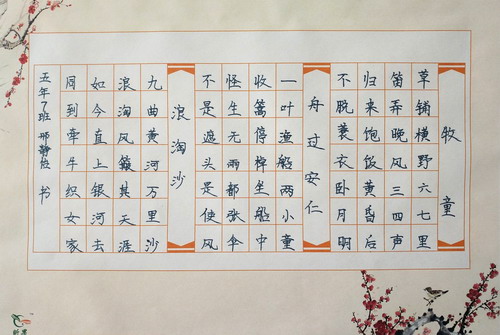 牧童
草铺横野六七里
笛弄晚风三四声
归来饱饭黄昏后
不脱蓑衣卧月明
舟过安仁
一叶渔船两小童
收篙停棹坐船中
怪生无雨都张伞
不是遮头是使风
浪淘沙
九曲黄河万里沙
浪淘风簸其天涯
如今直上银河去
同到牵牛织女家
五年7班 邢静 书